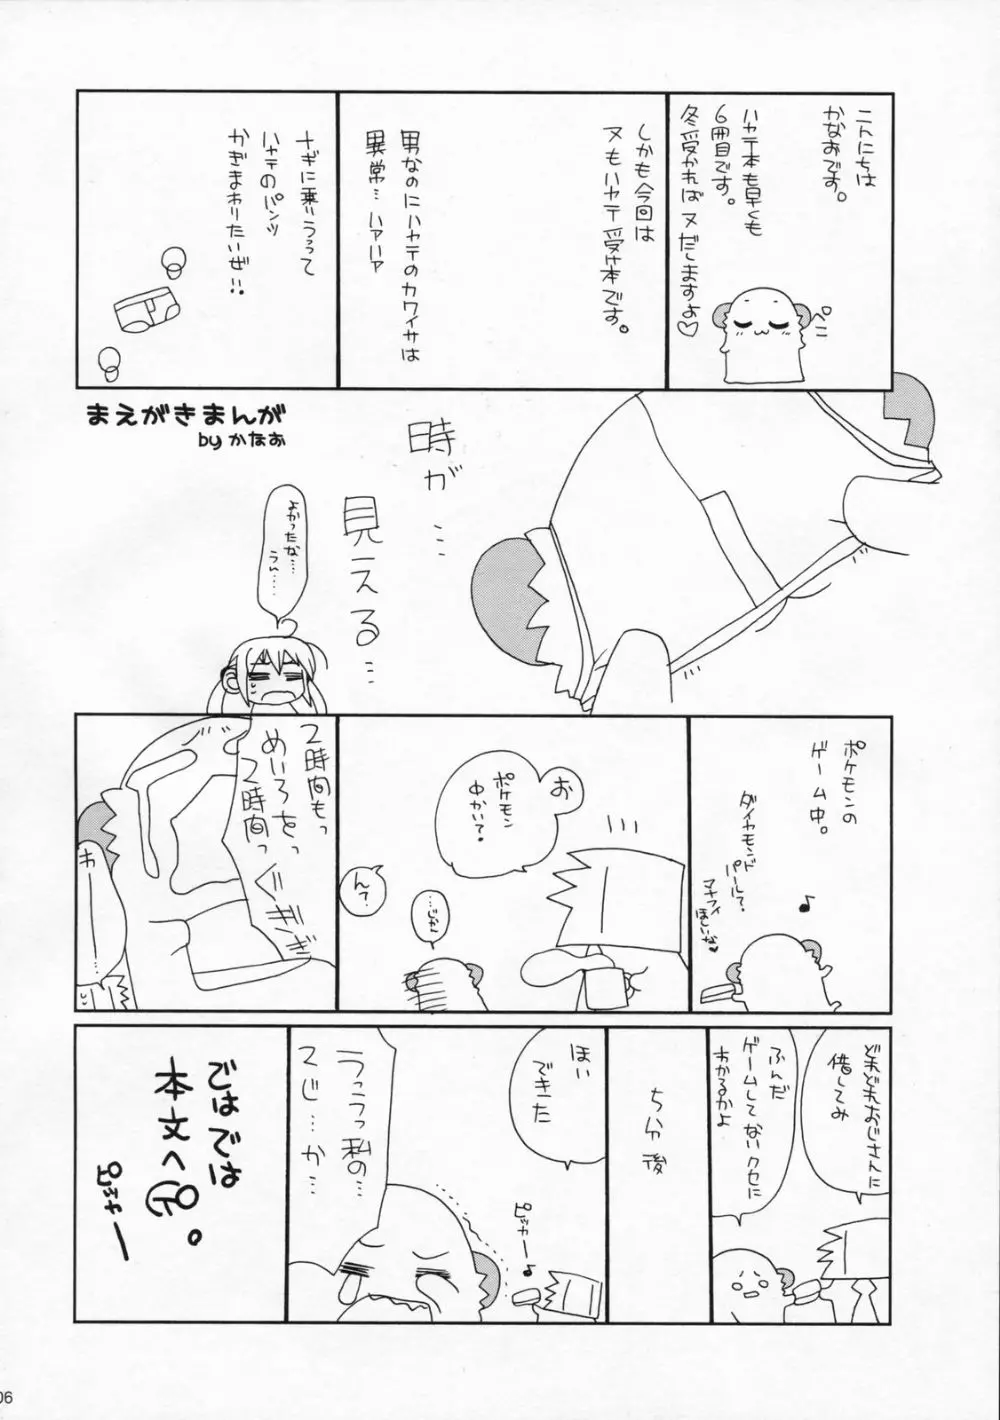 こんにちは
かなおです。
ハヤテ本も早くも
6冊目です。
冬受かればヌだしますよ♡
ぺこ
しかも今回は
ヌもハヤテ受け本です。
男なのにハヤテのカワイサは
異常…ハァハァ
ナギに乗りうつって
ハヤテのパンツ
かぎまわりたいぜ!!
まえがきまんが
by かなお
時が…
見える…
よかったな…
うん……
ポケモンの
ゲーム中。
ダイヤモンド
パールで。
マナフィ
ほしいな♥
お
ポケモン
中かい?
…じゃん
ん?
2時間もっ
めいろをっ
2時間っ
ぐぎぎ
わ
どれどれおじさんに
借してみ
ふんだ
ゲームしてないクセに
わかるかよ
5分後
ほい
できた
ピッカー♪
うっうっ私の…
2じ…か…
ではでは
本文へGO。
ピッカー
06